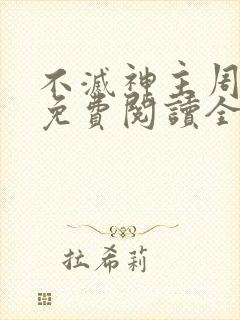 不滅神主周
免費閱讀全
拉希莉